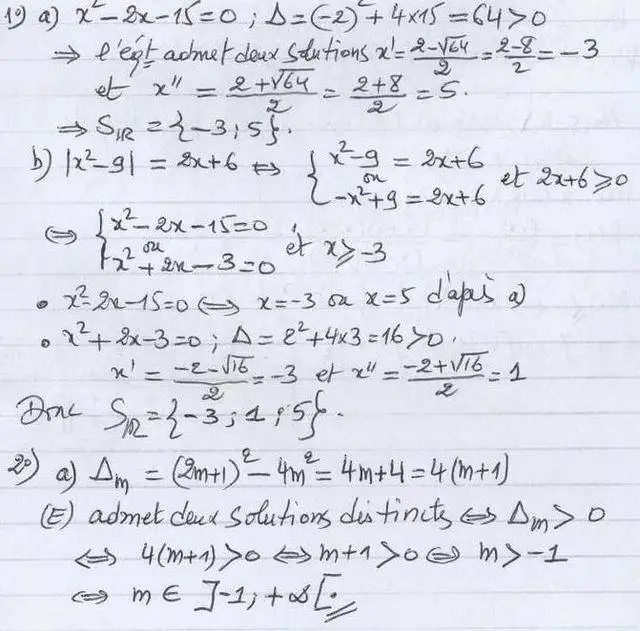 1°) a) x²-2x-15=0 ; Δ=(-2)²+4×15=64>0
⇒ l'éqt admet deux solutions x'=(2-√64)/2=(2-8)/2=-3
et x''=(2+√64)/2=(2+8)/2=5.
⇒ S_IR={-3;5}.
b) |x²-9|=2x+6 ⇔ { x²-9=2x+6 ou -x²+9=2x+6 et 2x+6≥0
⇔ { x²-2x-15=0 ou x²+2x-3=0 et x≥-3
• x²-2x-15=0 ⇔ x=-3 ou x=5 d'après a)
• x²+2x-3=0 ; Δ=2²+4×3=16>0.
x'=(-2-√16)/2=-3 et x''=(-2+√16)/2=1
Donc S_IR={-3;1;5}.
2°) a) Δm=(2m+1)²-4m²=4m+4=4(m+1)
(E) admet deux solutions distincts ⇔ Δm>0
⇔ 4(m+1)>0 ⇔ m+1>0 ⇔ m>-1
⇔ m∈]-1;+∞[.